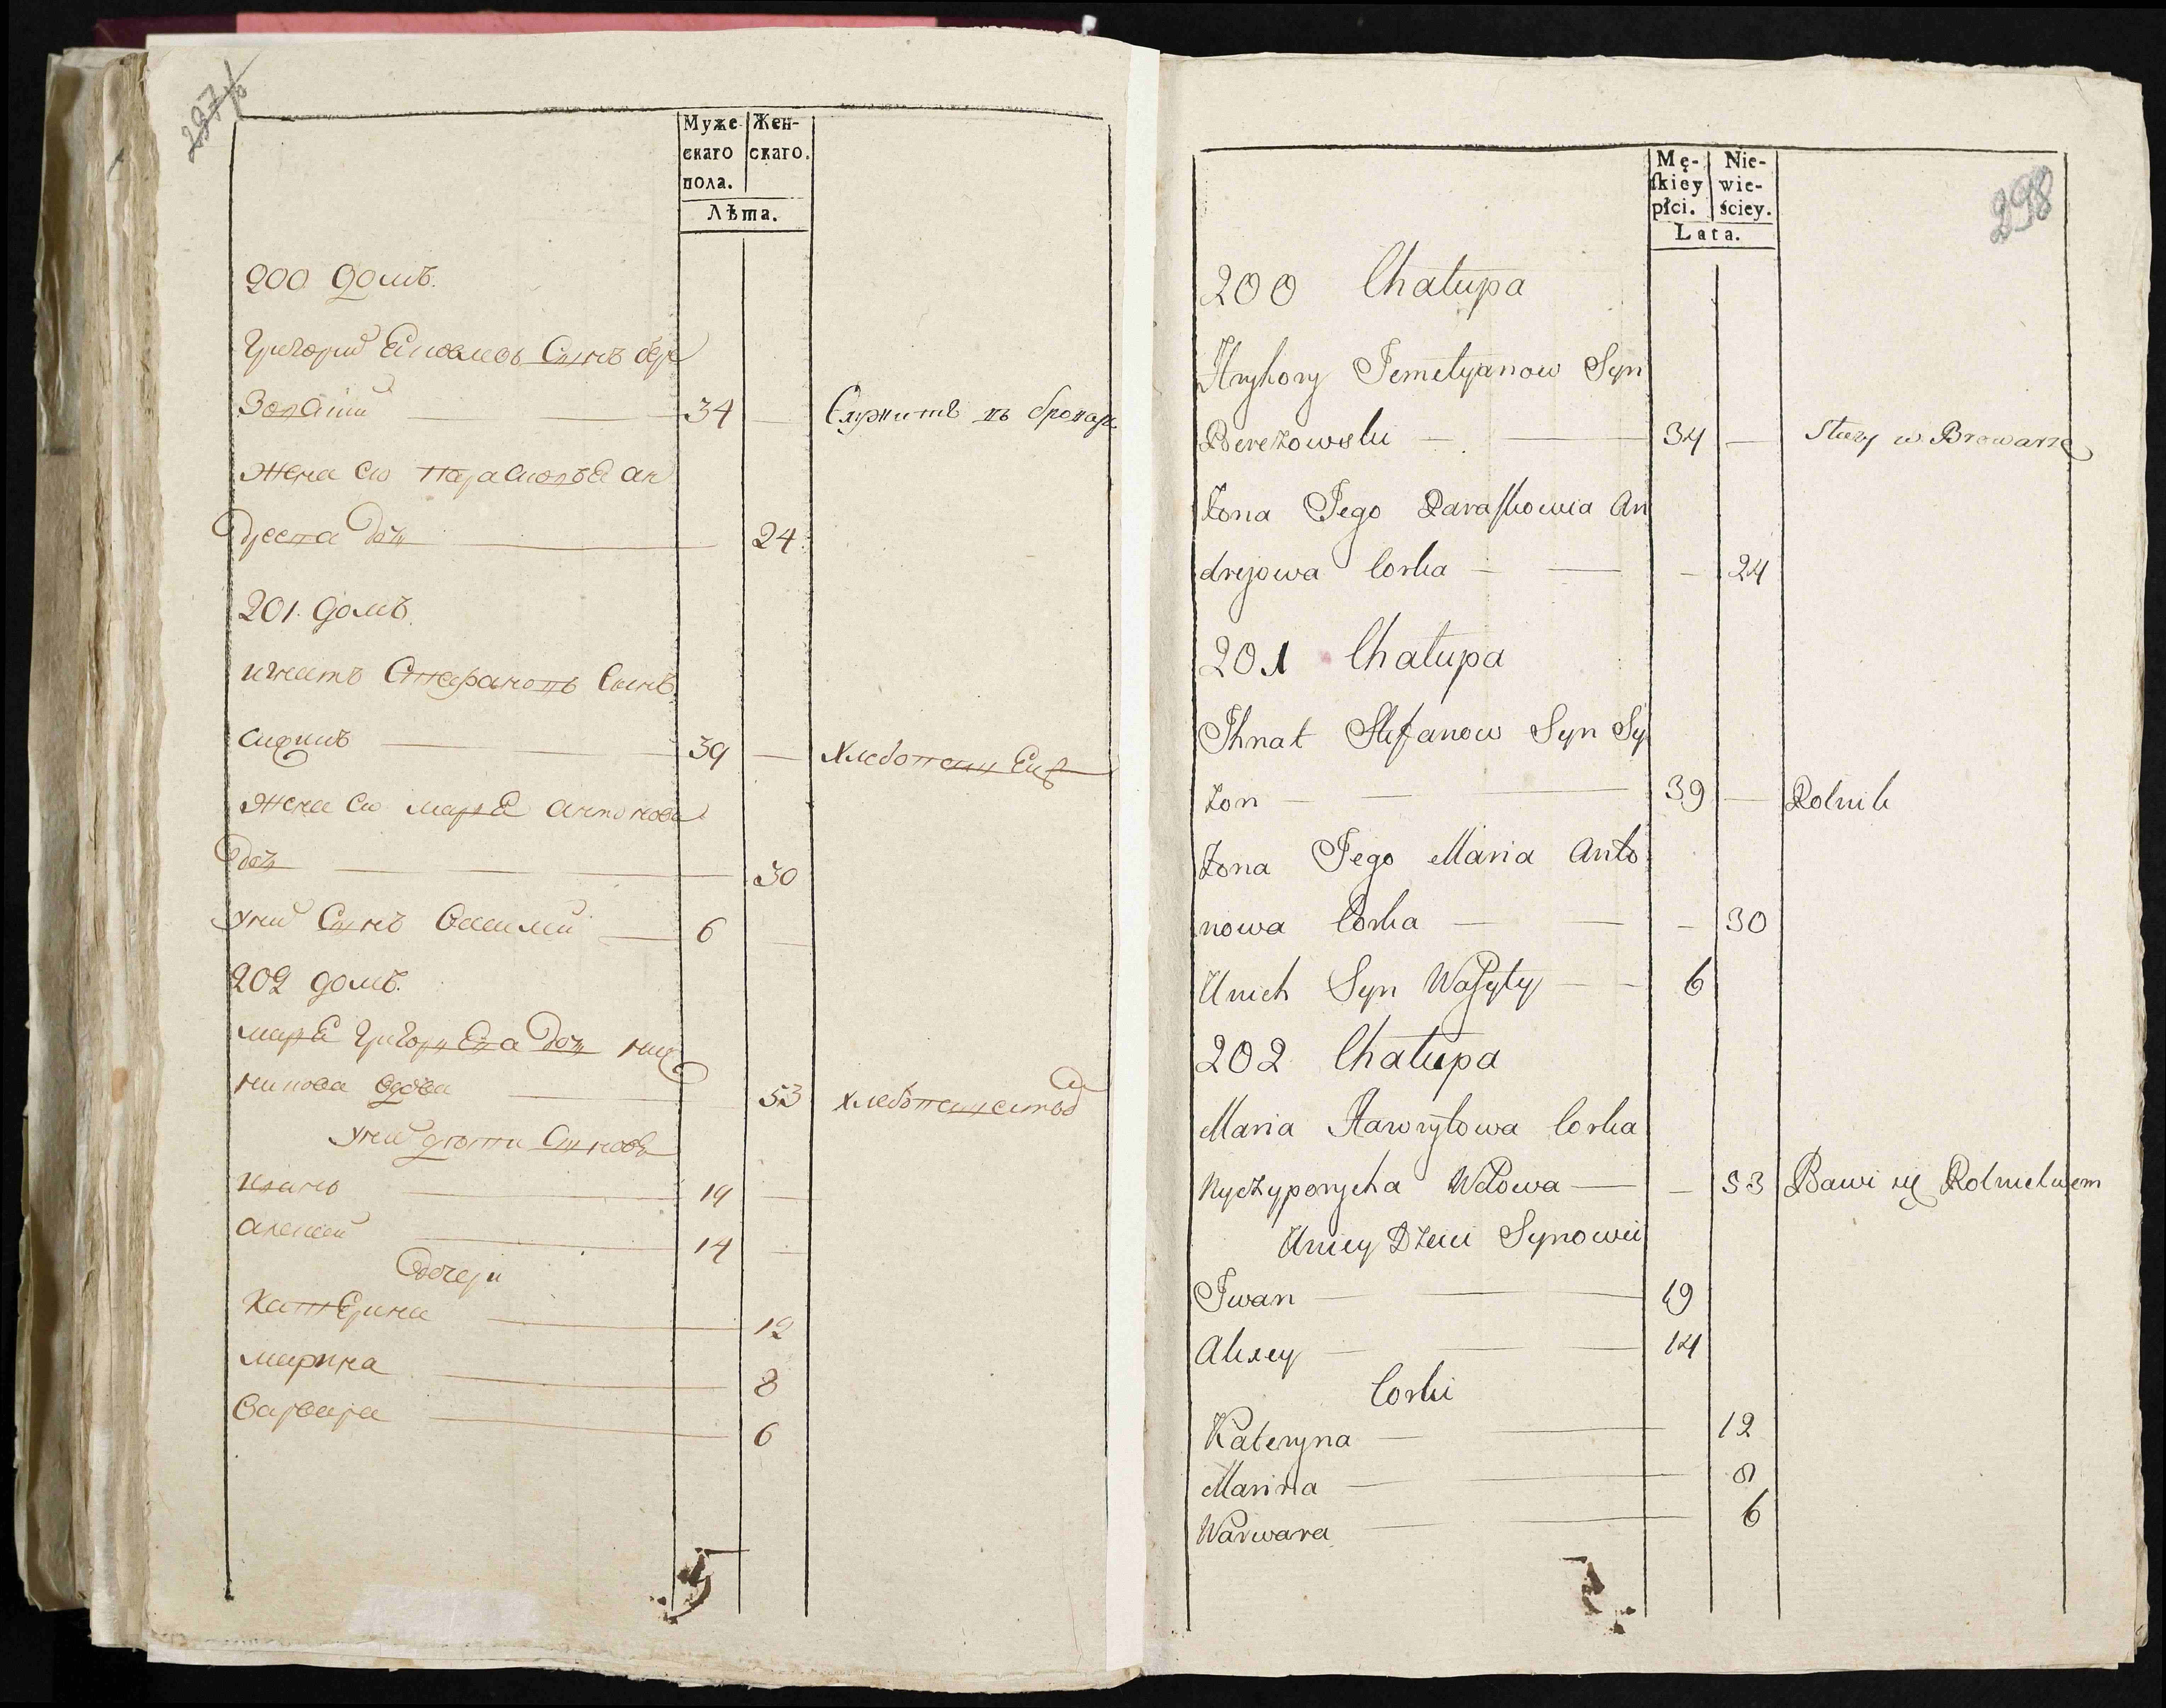 297
Муже Жен-
скаго скаго.
пола.
Лѣта.
200 домъ.
Григорий Емѣлновъ Сынъ бере
Зовский 34 Служитъ въ бровару
Жена Ево Парасковѣя Ан
дреева дочь 24
201. домъ.
игнатъ Стефановъ Сынъ
сиджонъ 39 Хлебопашецъ
Жена Ево марья антонова
дочь 30
унихъ Сынъ Василий 6
202 домъ.
марья Григорьева дочь ничи
вдова 53 хлебопашествомъ
унихъ дѣти Сыновья
иванъ 19
алексей 14
дочери
Катерина 12
марина 8
варвара 6
298
Mę- Nie-
ſkiey wie-
płci. ściey.
Lata.
200 Chałupa
Hryhory Jemelyanow Syn
Berezowski 34 Służy w Browarze
Zona Jego Paraskowia An
drejowa Corka 24
201 Chałupa
Ihnat Stefanow Syn Sy
zon 39 Rolnik
Zona Jego Maria Anto
nowa Corka 30
Unich Syn Wasyly 6
202 Chałupa
Maria Hawryłowa Corka
Nyczyporycha Wdowa 53 Bawi się Rolnictwem
Uniey Dzieci Synowie
Iwan 19
Alexey 14
Corki
Kateryna 12
Marina 8
Warwara 6